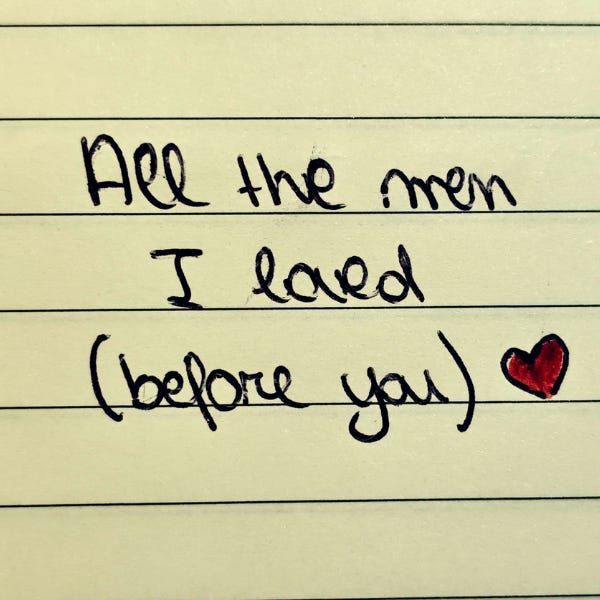 All the men
I loved
(before you) ❤